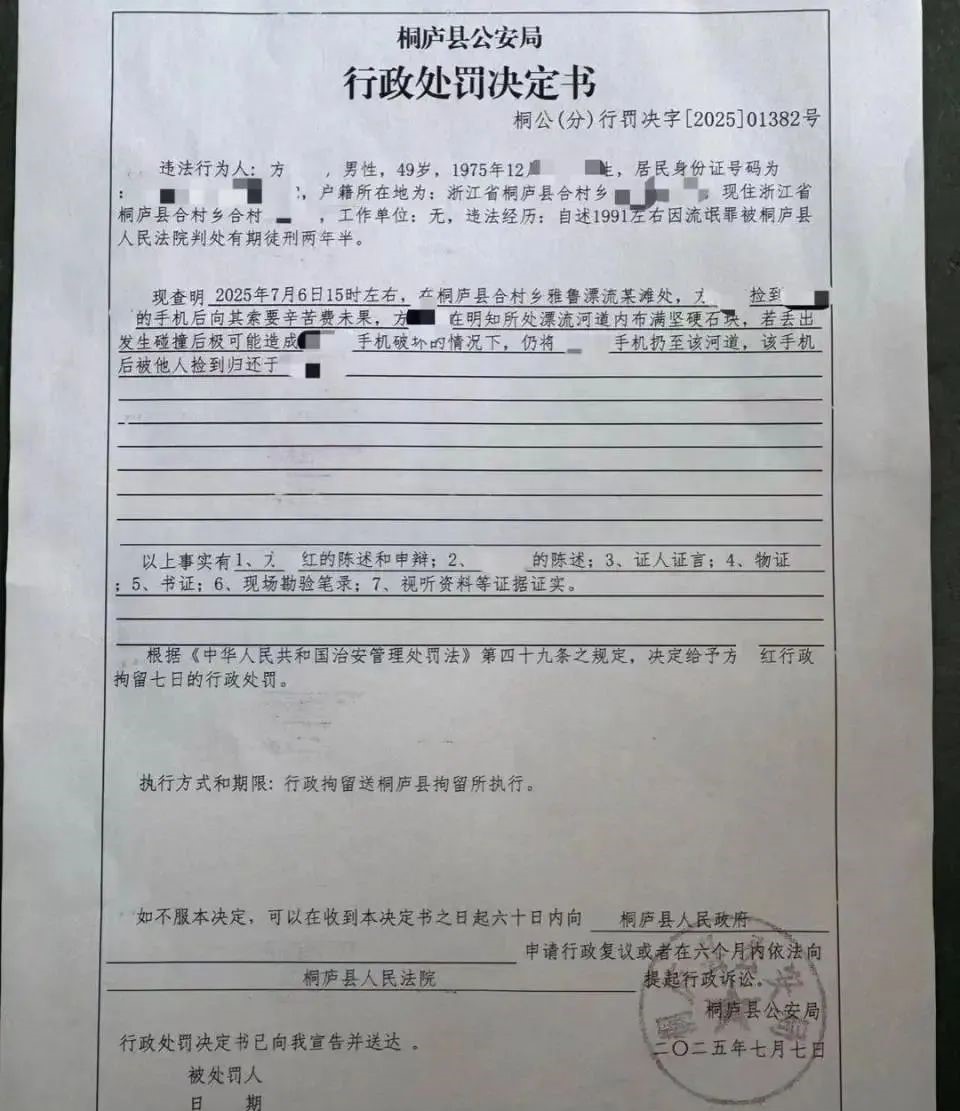 桐庐县公安局
行政处罚决定书
桐公(分)行罚决字[2025]01382号
违法行为人：方 ，男性，49岁，1975年12 生，居民身份证号码为
： ，户籍所在地为：浙江省桐庐县合村乡 ，现住浙江省
桐庐县合村乡合村 ，工作单位：无，违法经历：自述1991左右因流氓罪被桐庐县
人民法院判处有期徒刑两年半。
现查明 2025年7月6日15时左右，在桐庐县合村乡雅鲁漂流某滩处， 捡到
的手机后向其索要辛苦费未果，方 在明知所处漂流河道内布满坚硬石块，若丢出
发生碰撞后极可能造成 手机破坏的情况下，仍将 手机扔至该河道，该手机
后被他人捡到归还于
以上事实有1、 红的陈述和申辩；2、 的陈述；3、证人证言；4、物证
；5、书证；6、现场勘验笔录；7、视听资料等证据证实。
根据《中华人民共和国治安管理处罚法》第四十九条之规定，决定给予方 红行政
拘留七日的行政处罚。
执行方式和期限：行政拘留送桐庐县拘留所执行。
如不服本决定，可以在收到本决定书之日起六十日内向 桐庐县人民政府
申请行政复议或者在六个月内依法向
桐庐县人民法院 提起行政诉讼。
桐庐县公安局
二〇二五年七月七日
行政处罚决定书已向我宣告并送达 。
被处罚人
日 期